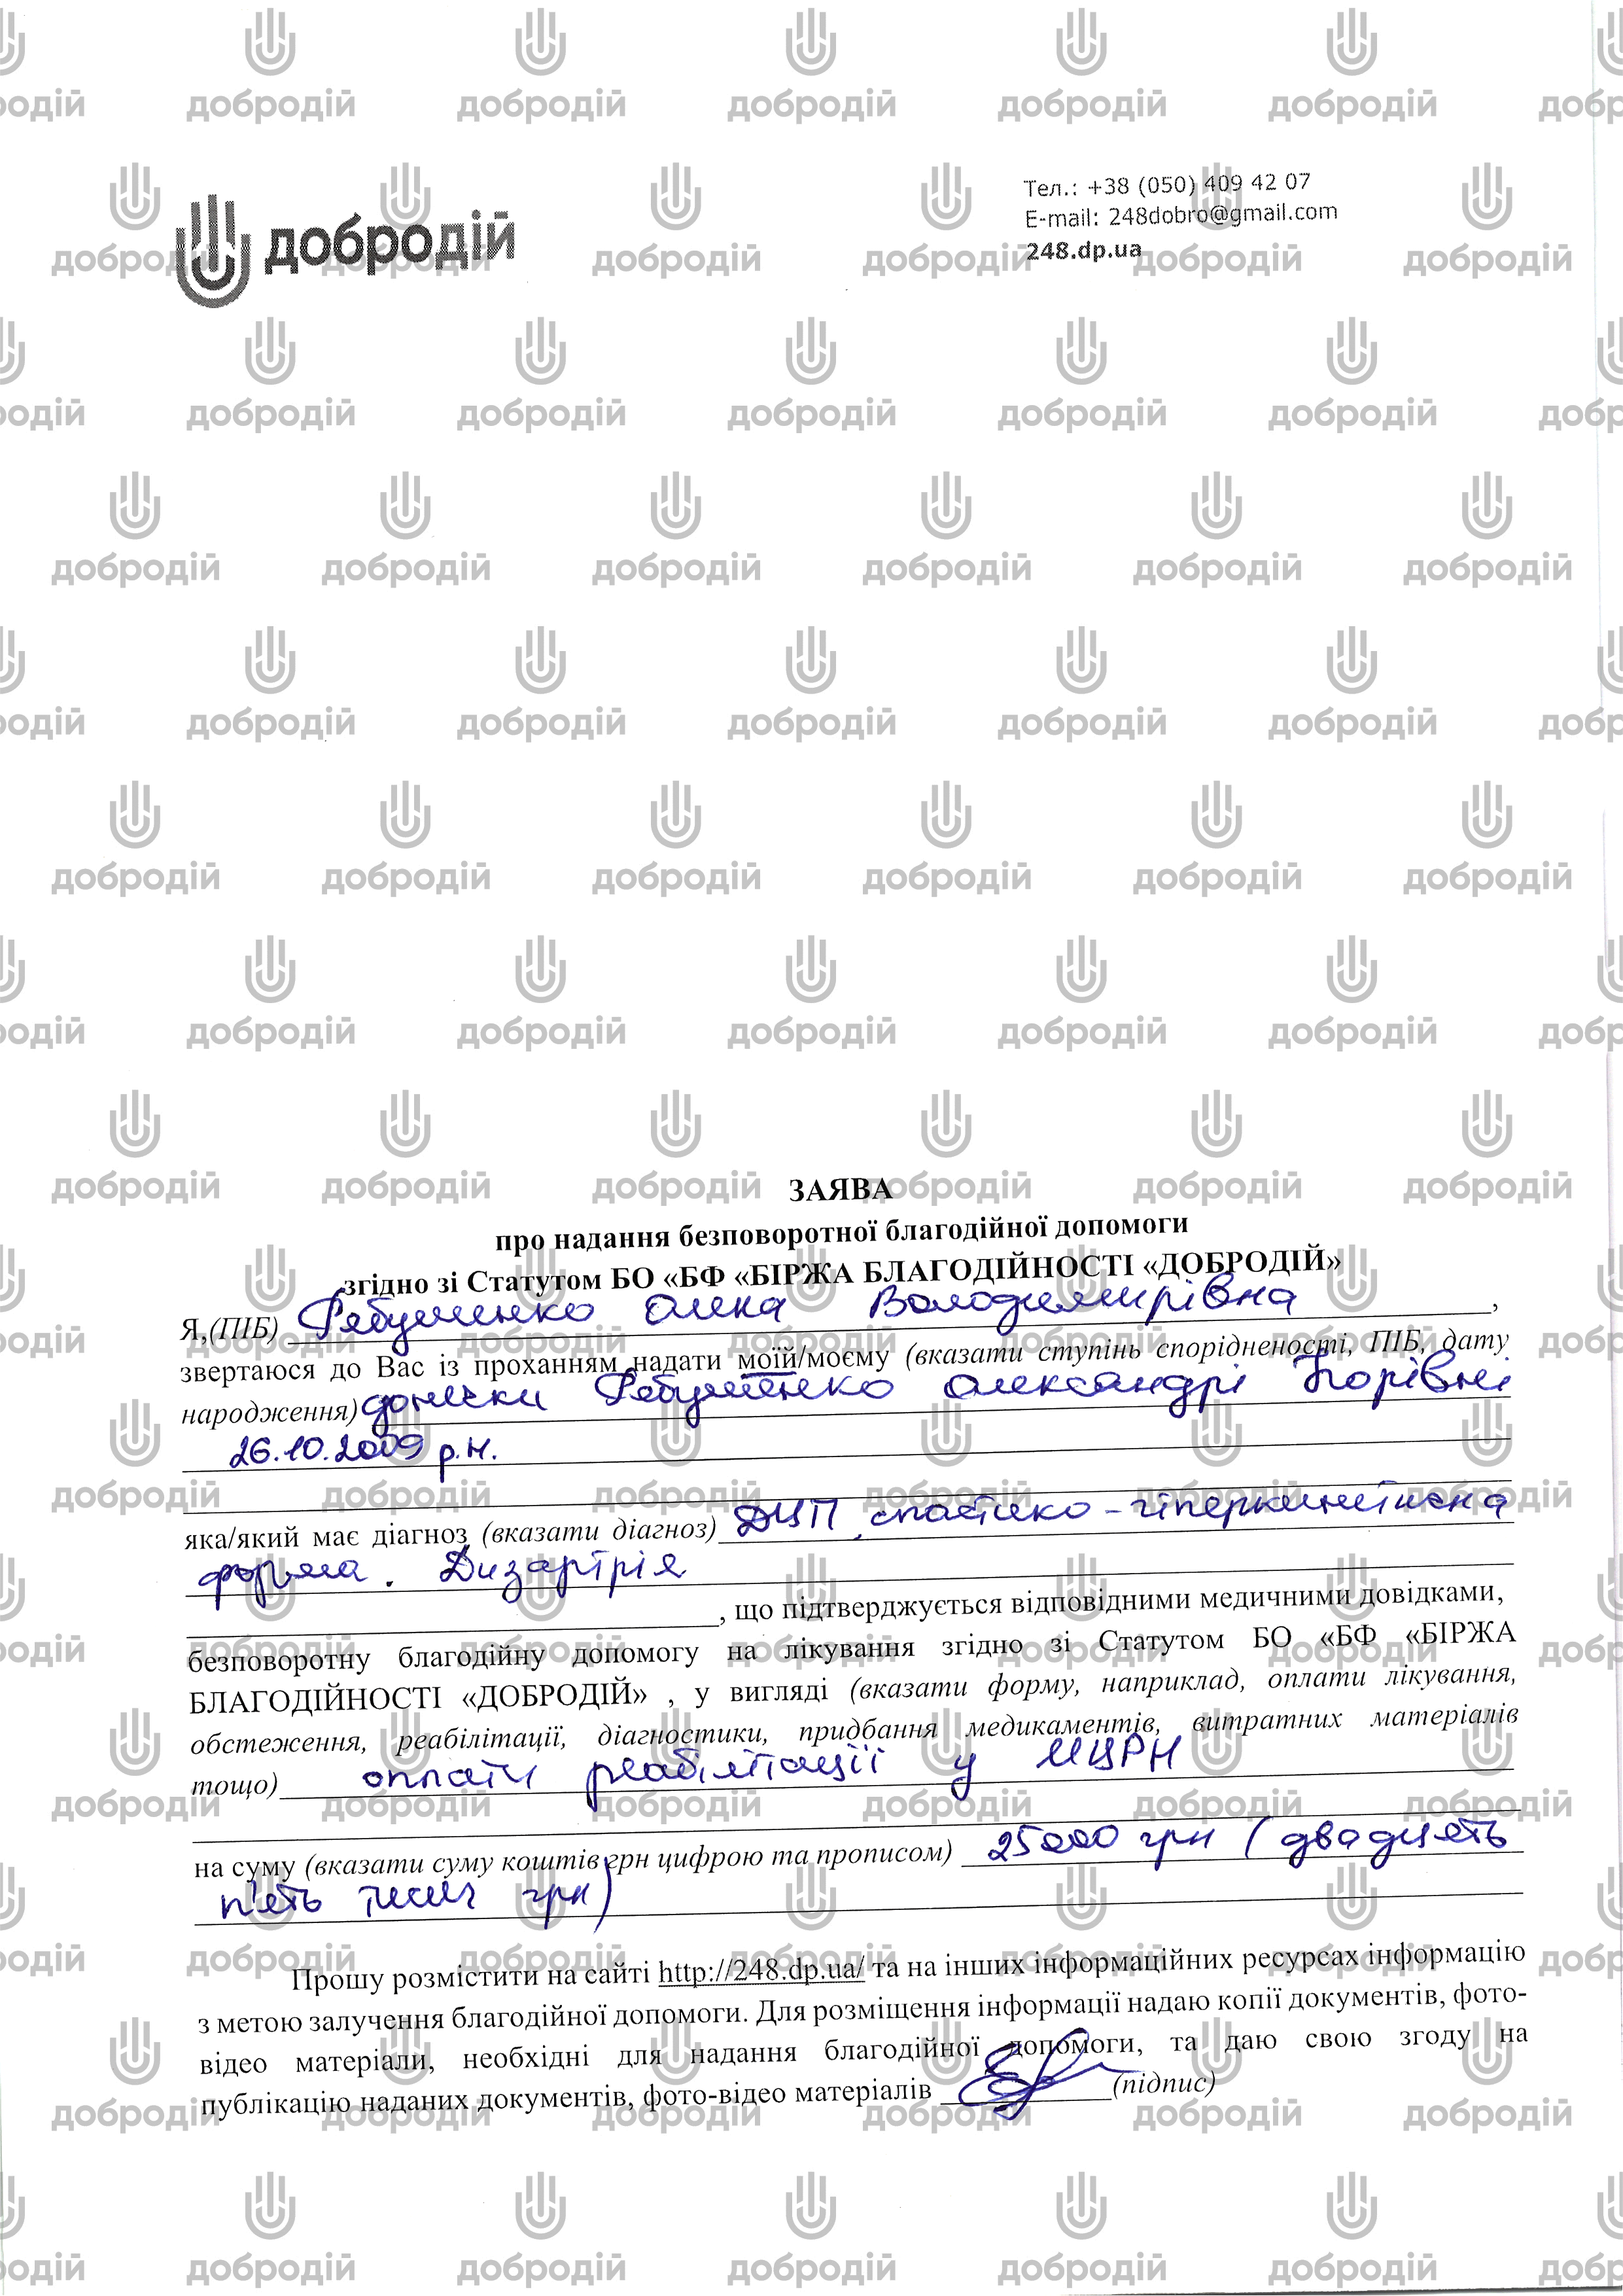 добродій
Тел.: +38 (050) 409 42 07
E-mail: 248dobro@gmail.com
248.dp.ua
ЗАЯВА
про надання безповоротної благодійної допомоги
згідно зі Статутом БО «БФ «БІРЖА БЛАГОДІЙНОСТІ «ДОБРОДІЙ»
Я,(ПІБ) Рябушенко Олена Володимирівна,
звертаюся до Вас із проханням надати моїй/моєму (вказати ступінь спорідненості, ПІБ, дату
народження) донечки Рябушенко Олександрі Ігорівні
26.10.2009 р.н.
яка/який має діагноз (вказати діагноз) ДЦП, спастико-гіперкинетична
форма. Дизартрія
, що підтверджується відповідними медичними довідками,
безповоротну благодійну допомогу на лікування згідно зі Статутом БО «БФ «БІРЖА
БЛАГОДІЙНОСТІ «ДОБРОДІЙ» , у вигляді (вказати форму, наприклад, оплати лікування,
обстеження, реабілітації, діагностики, придбання медикаментів, витратних матеріалів
тощо) оплати реабілітації у МЦРН
на суму (вказати суму коштів грн цифрою та прописом) 25000 грн (двадцять
п'ять тисяч грн)
Прошу розмістити на сайті http://248.dp.ua/ та на інших інформаційних ресурсах інформацію
з метою залучення благодійної допомоги. Для розміщення інформації надаю копії документів, фото-
відео матеріали, необхідні для надання благодійної допомоги, та даю свою згоду на
публікацію наданих документів, фото-відео матеріалів (підпис)